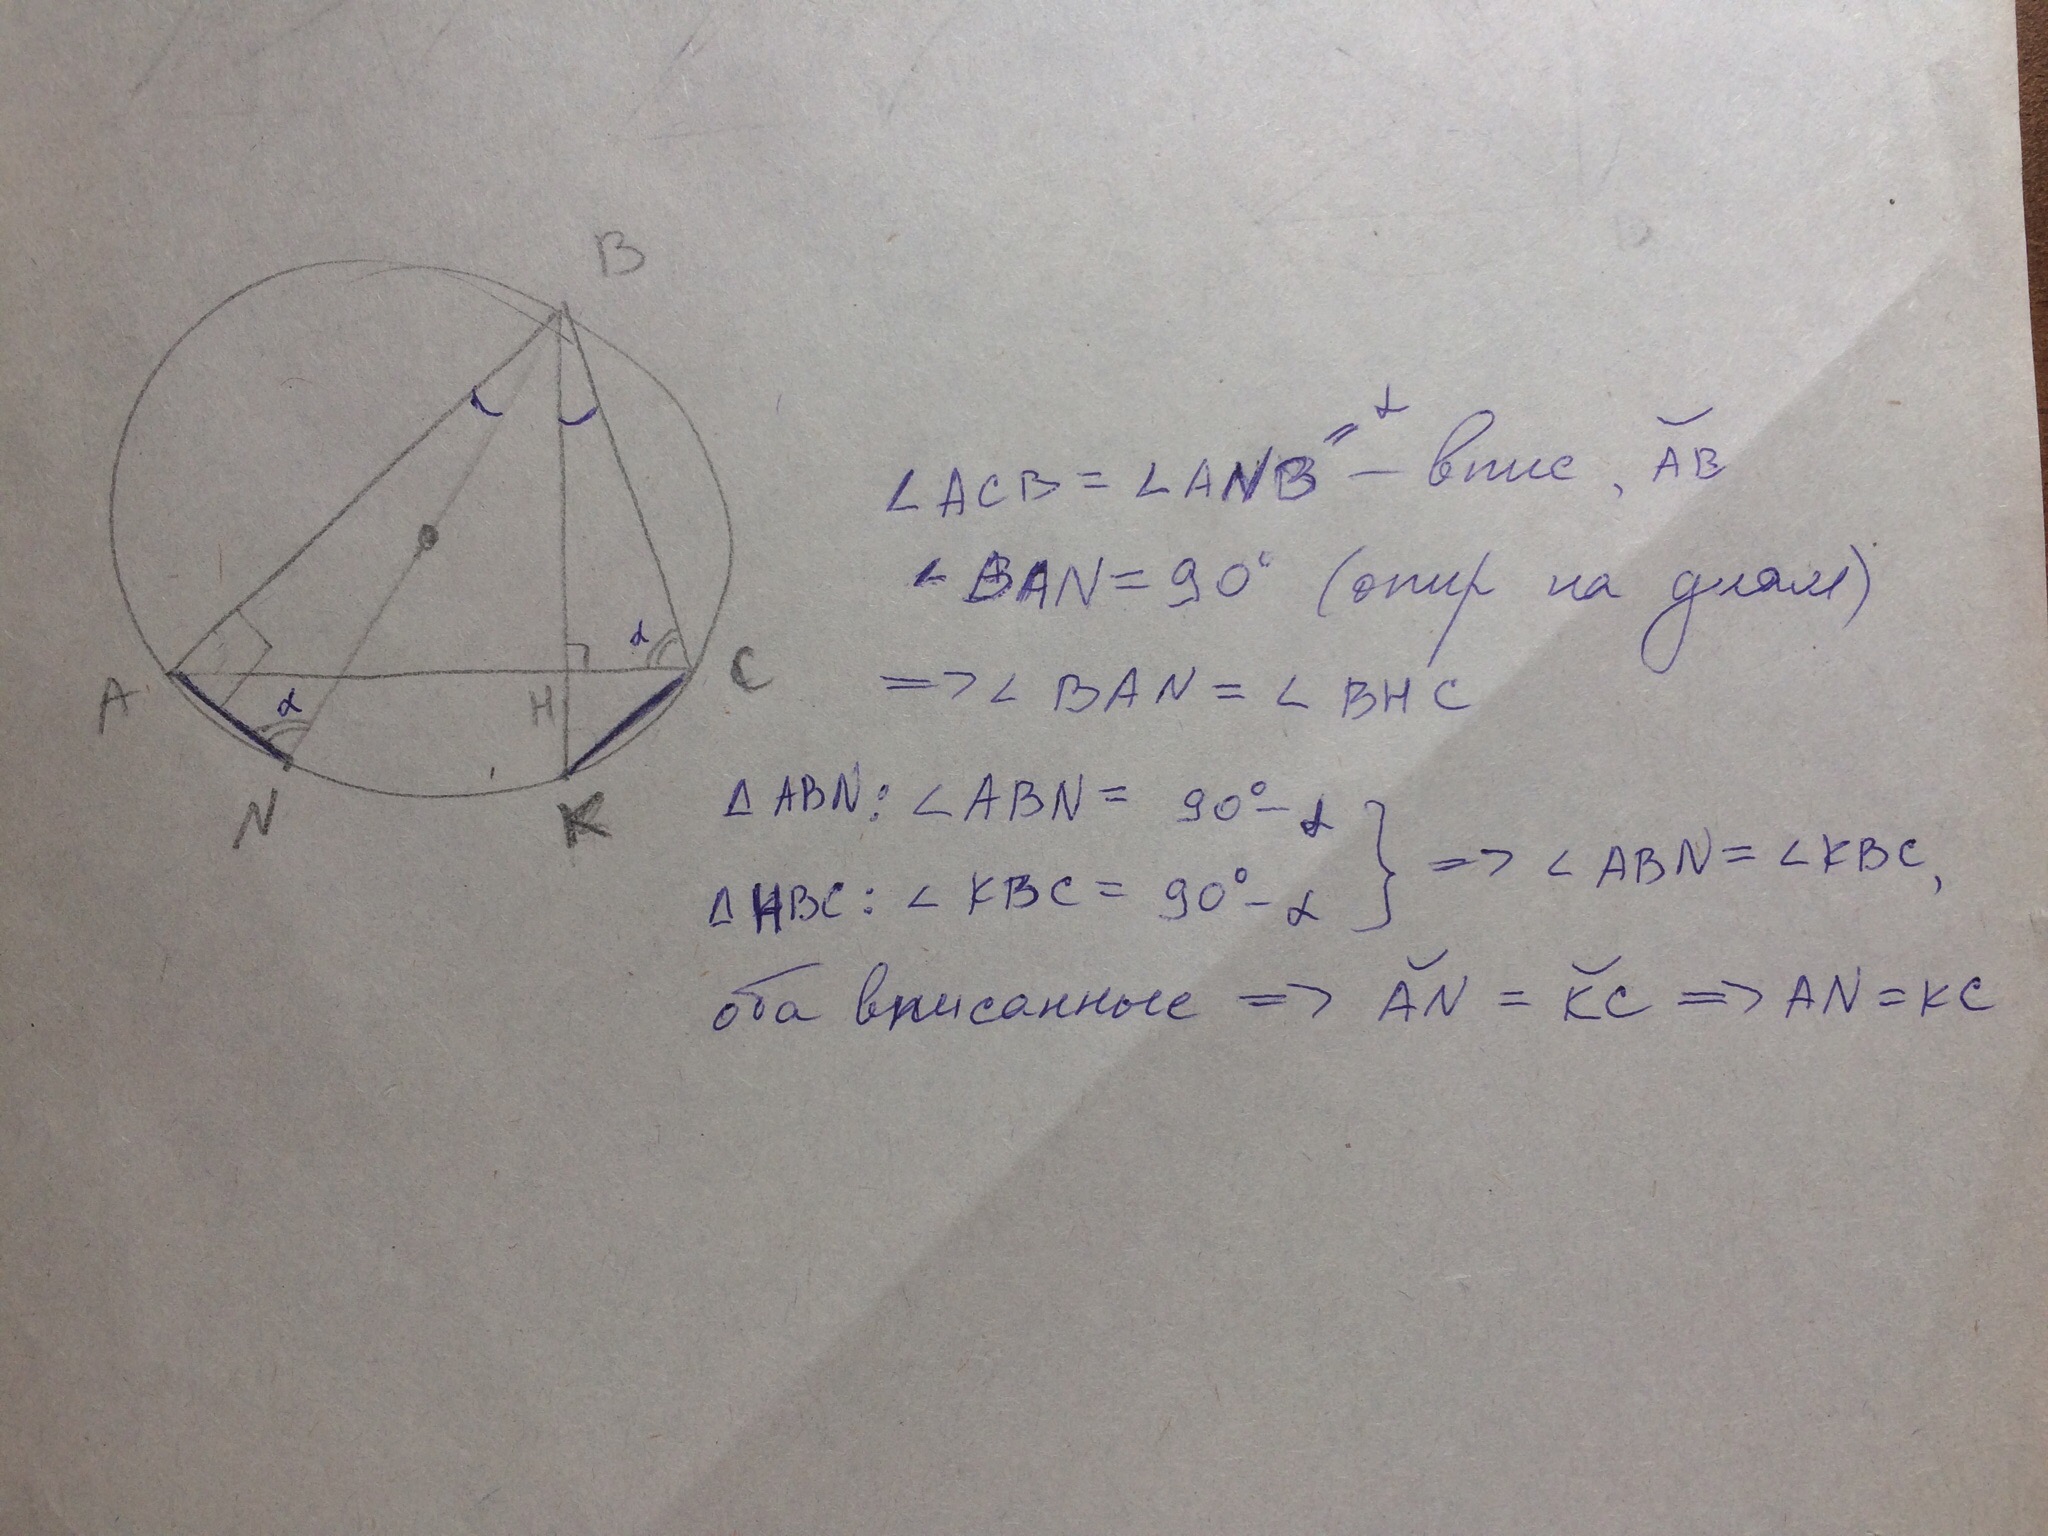 B
A
N
K
C
H
α
α
∠ACB = ∠ANB = α – впис, ◡AB
∠BAN = 90° (опир на диам)
=> ∠BAN = ∠BHC
Δ ABN: ∠ABN = 90° - α
Δ HBC: ∠KBC = 90° - α } => ∠ABN = ∠KBC,
оба вписанные => ◡AN = ◡KC => AN = KC